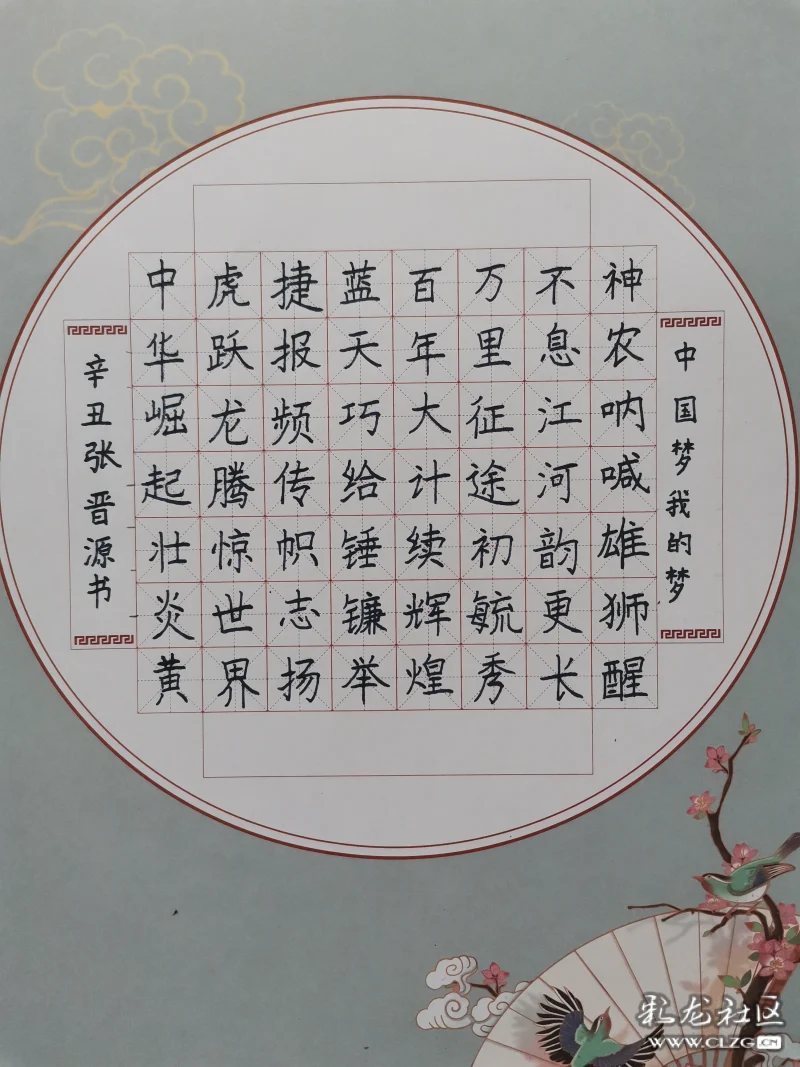 中国梦我的梦
神农呐喊雄狮醒
不息江河韵更长
万里征途初毓秀
百年大计续辉煌
蓝天巧给锤镰举
捷报频传帜志扬
虎跃龙腾惊世界
中华崛起壮炎黄
辛丑张晋源书
彩龙社区
WWW.CLZG.CN